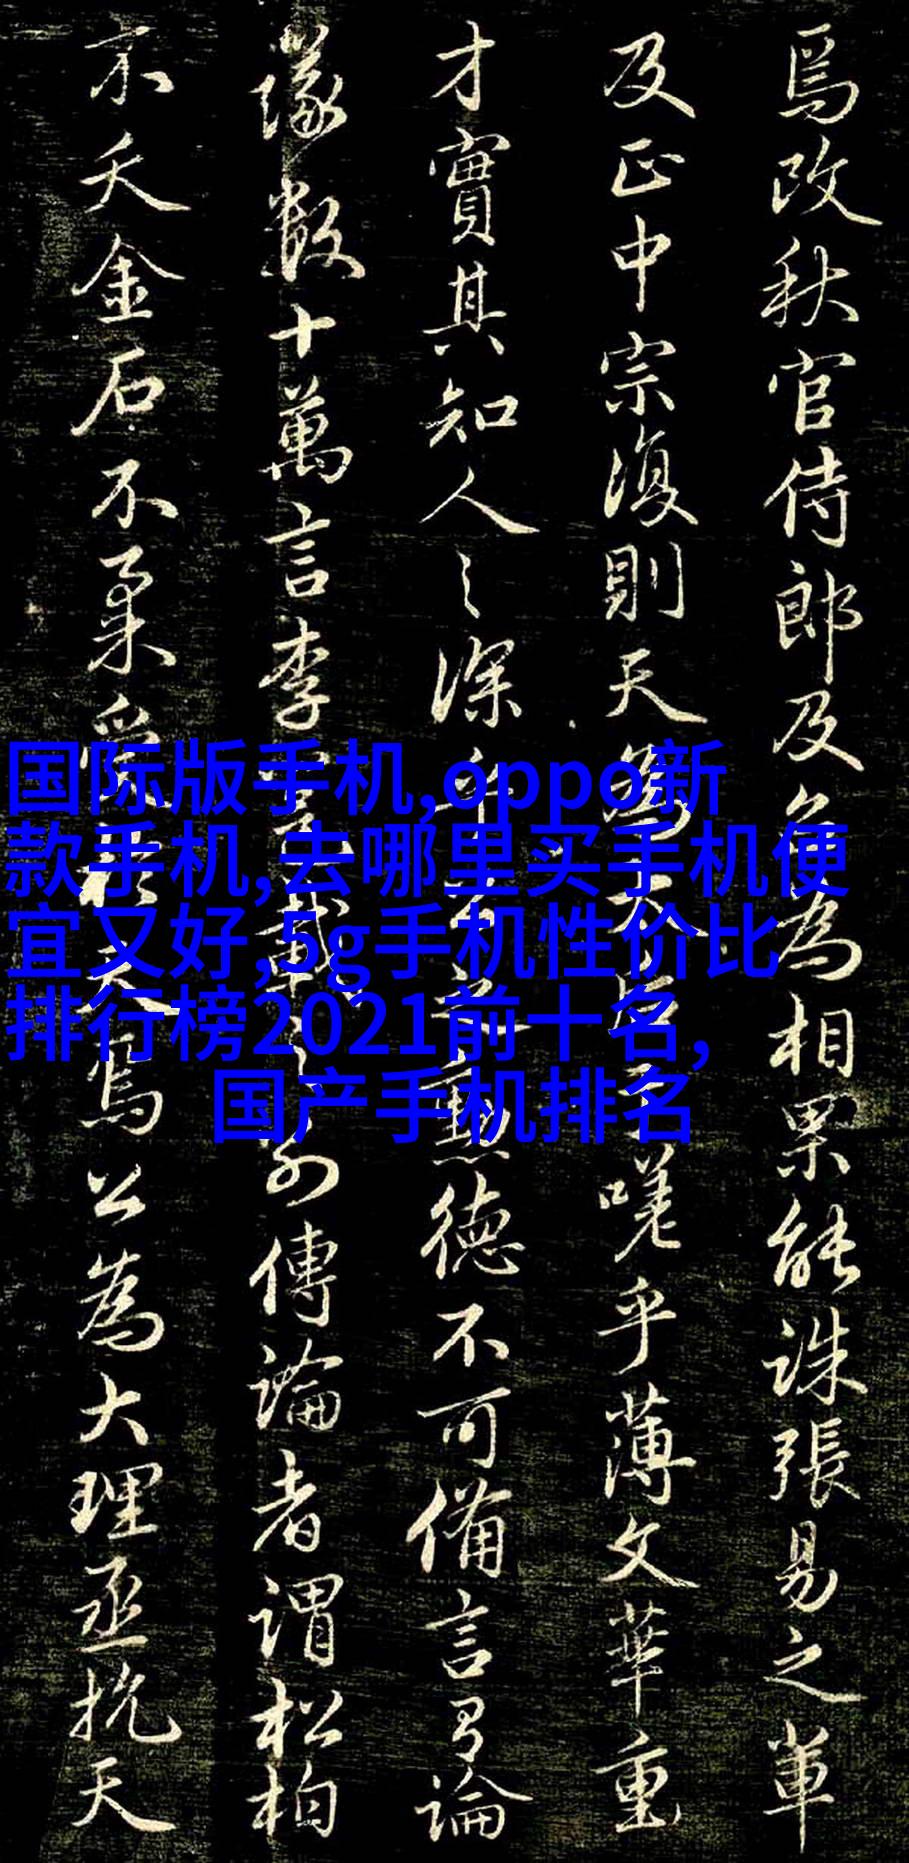 焉改秋官侍郎及為相果能誅張易之輩
及正中宗復則天為不嗟乎薄文華重
才實其知人之深之勲德不可備言有論
數十萬言李載之別傳論者謂松柏
夭金石不柔受於天焉公為大理丞抗天
国际版手机,oppo新
款手机,去哪里买手机便
宜又好,5g手机性价比
排行榜2021前十名,
国产手机排名